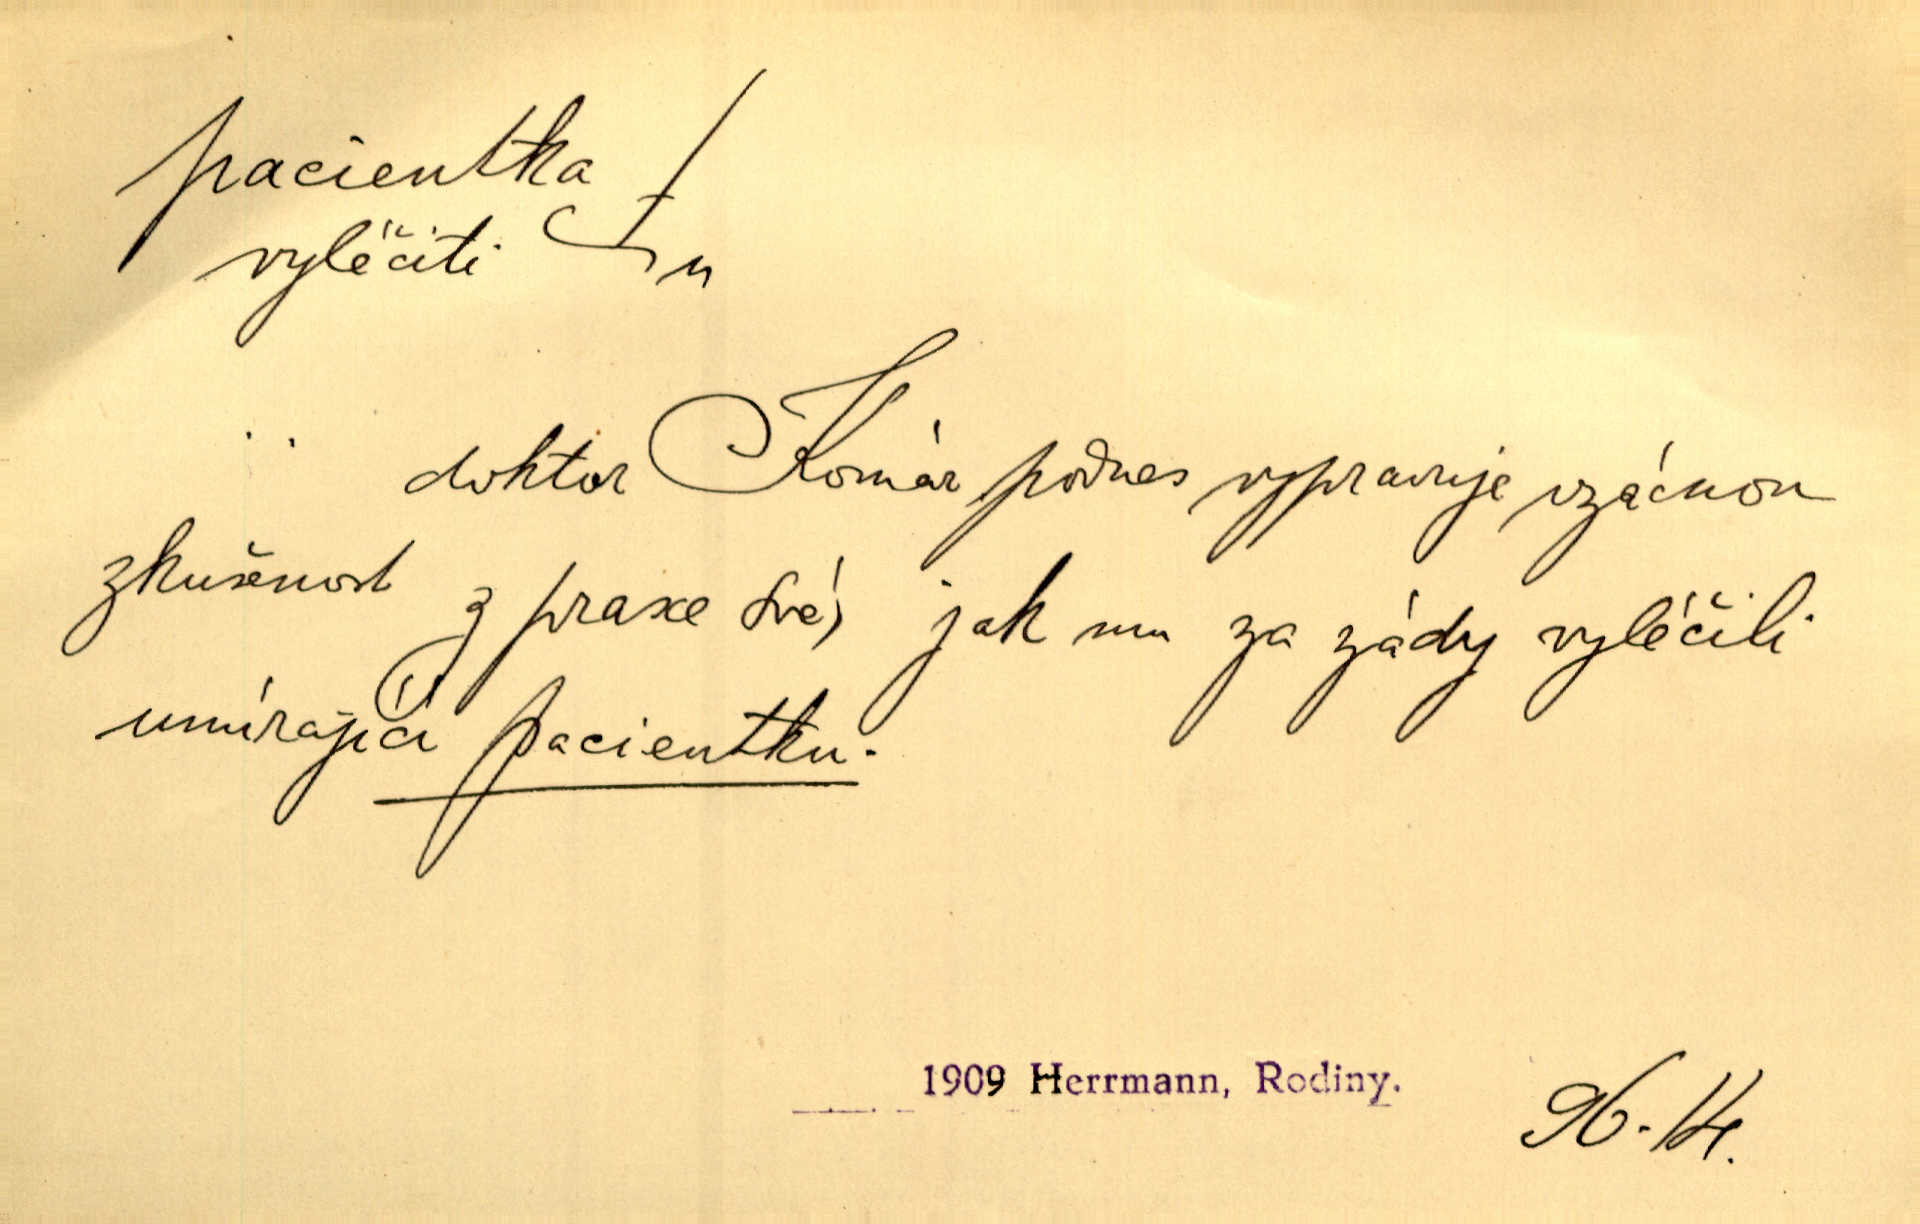 pacientka
vyléčiti
.. doktor Komár podnes vypravuje vzácnou
zkušenost z praxe své, jak mu za zády vyléčili
umírající pacientku.
1909 Herrmann, Rodiny.
96.14.